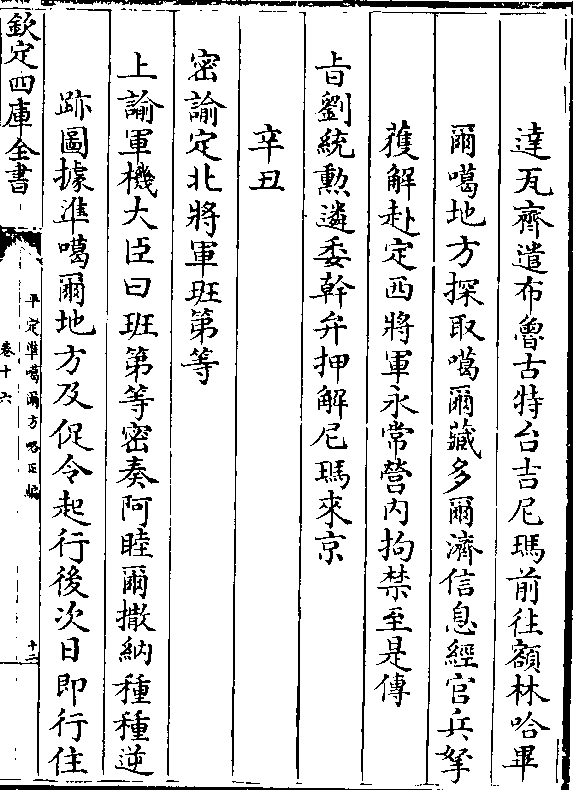 達瓦齊遣布魯古特台吉尼瑪前往額林哈畢
爾噶地方探取噶爾藏多爾濟信息經官兵拏
獲解赴定西將軍永常營内拘禁至是傳
㫖劉統勲遴委幹弁押解尼瑪來京
辛丑
密諭定北將軍班第等
上諭軍機大臣曰班第等密奏阿睦爾撒納種種逆
跡圖據準噶爾地方及促令起行後次日即行住
欽定四庫全書
平定凖噶爾方畧正編
卷十六
十二